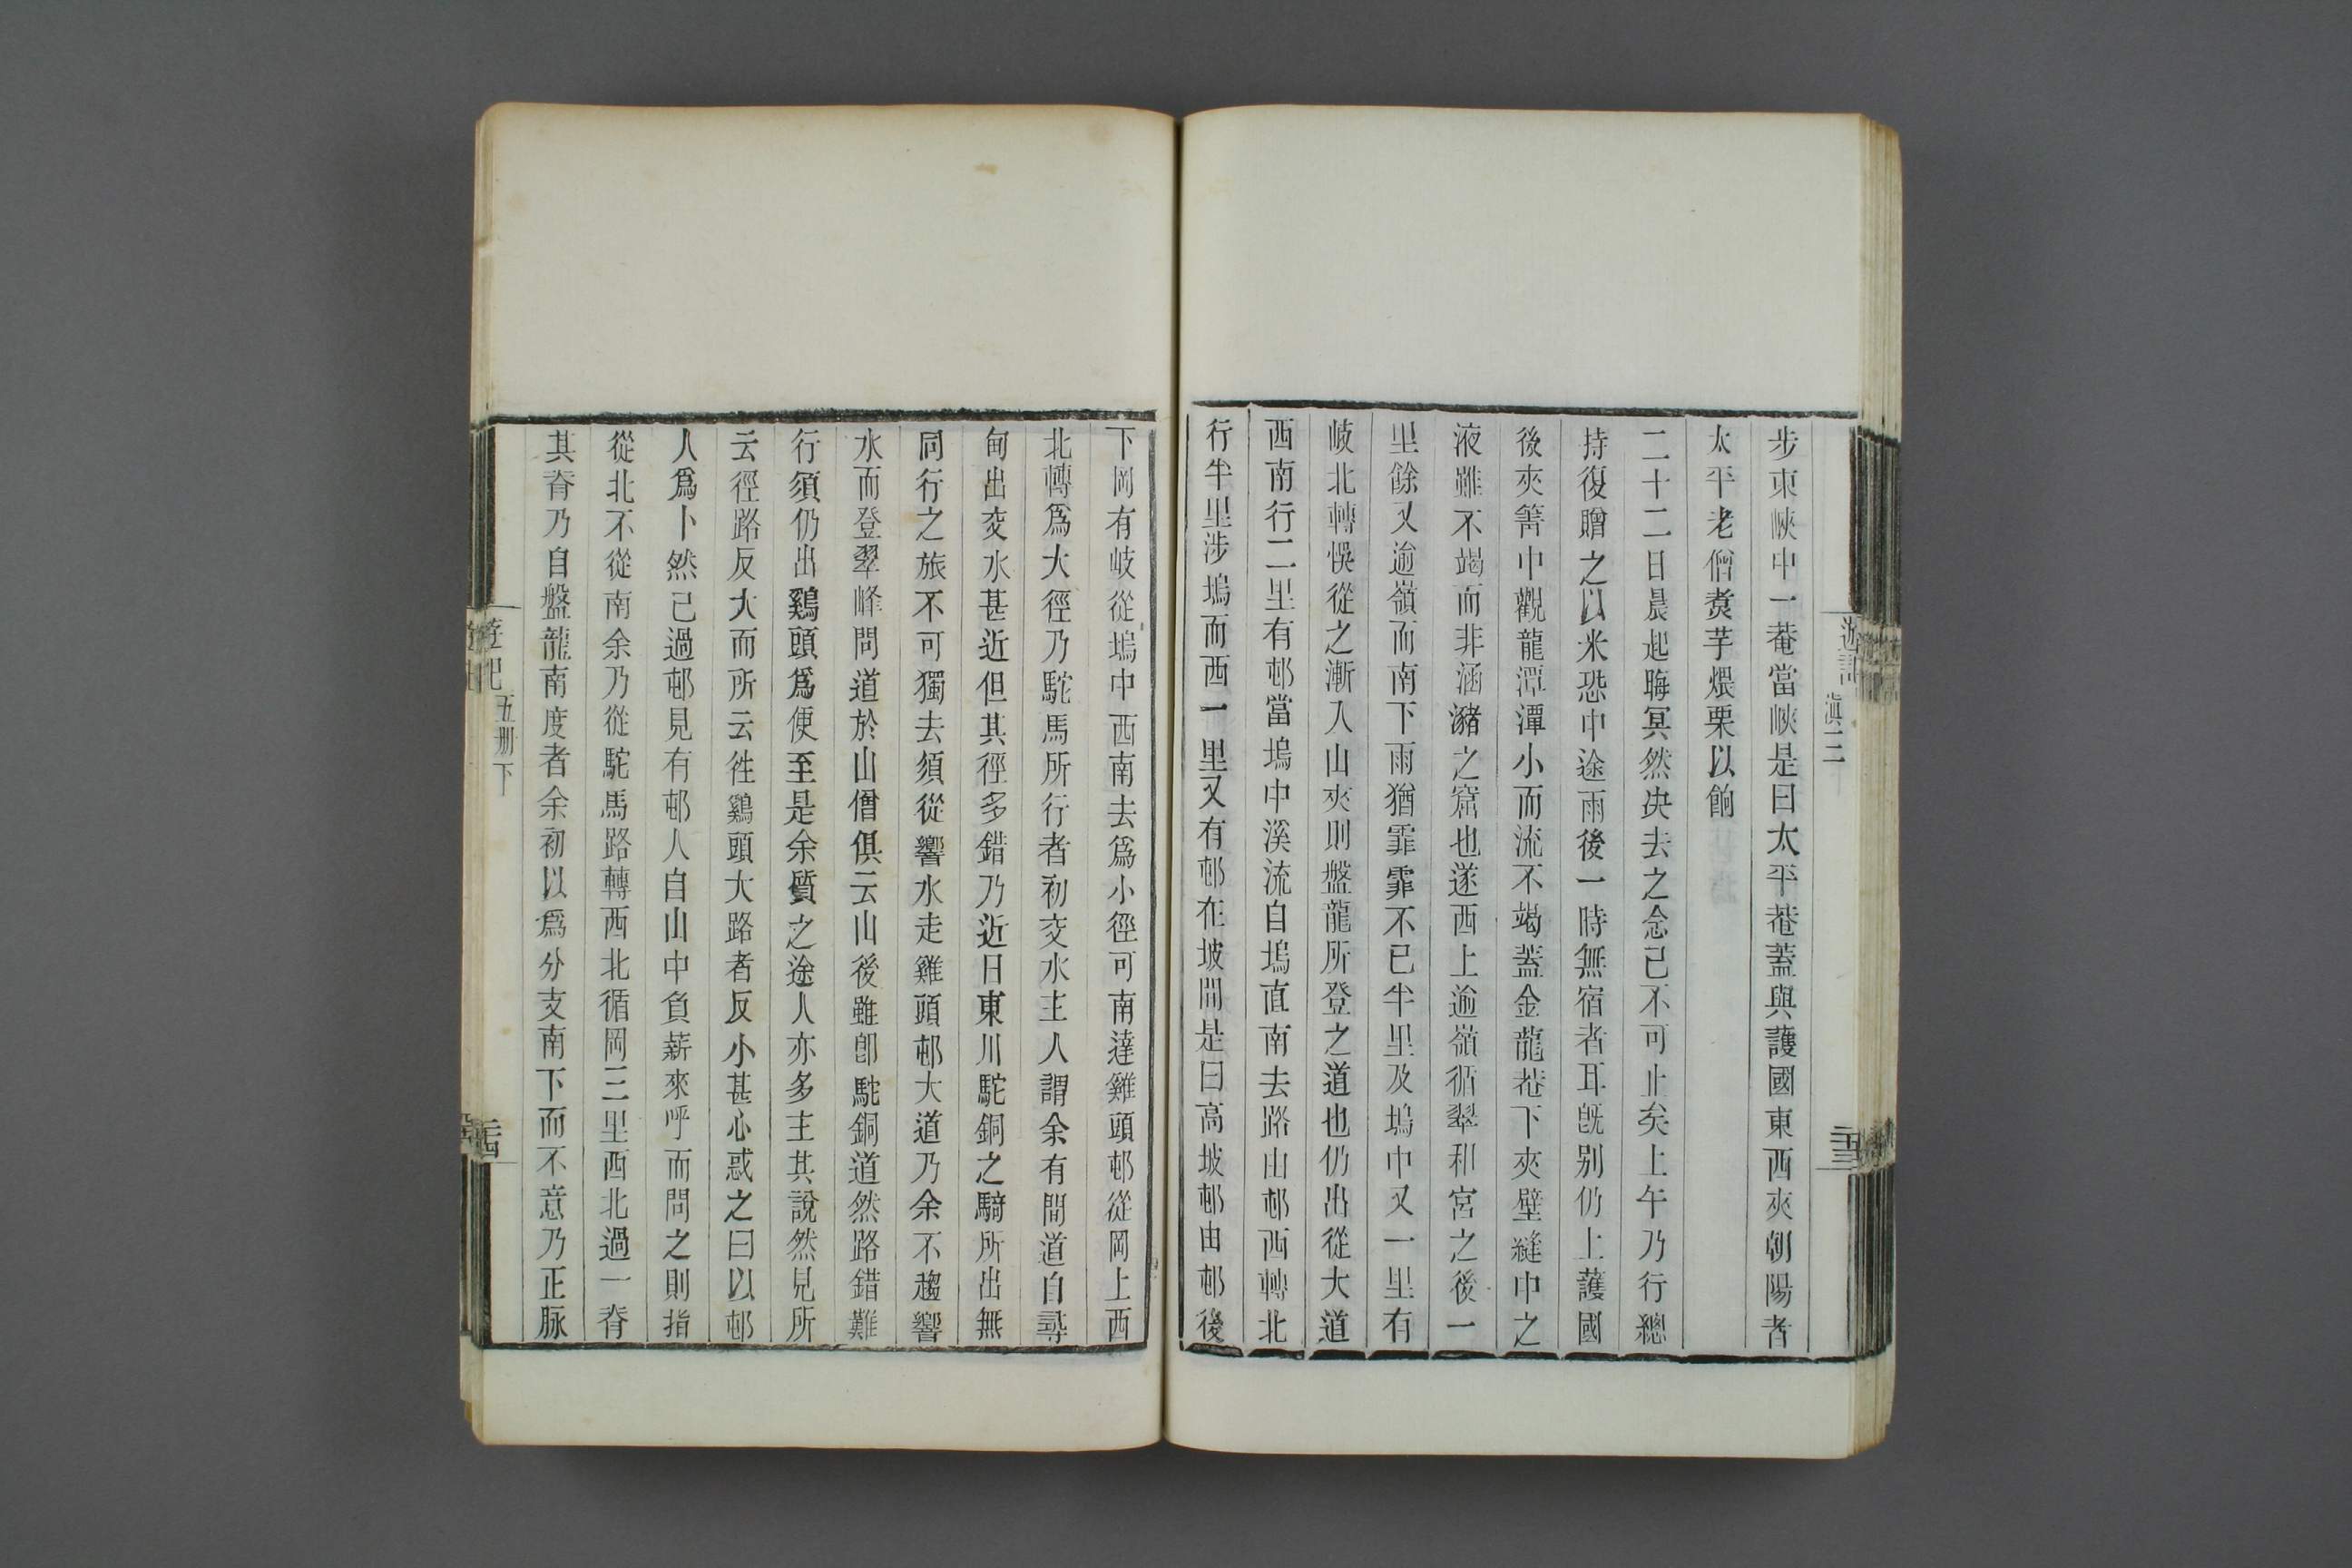 遊記
滇三
二十三
步東峽中一菴當峽是曰太平菴蓋與護國東西夾朝陽者
太平老僧煑芋煨栗以餉
二十二日晨起晦冥然决去之念已不可止矣上午乃行總
持復贈之以米恐中途雨後一時無宿者耳旣别仍上護國
後夾箐中觀龍潭潭小而流不竭蓋金龍菴下夾壁縫中之
液雖不竭而非涵瀦之窟也遂西上逾嶺循翠和宮之後一
里餘又逾嶺而南下雨猶霏霏不已半里及塢中又一里有
岐北轉悞從之漸入山夾則盤龍所登之道也仍出從大道
西南行二里有邨當塢中溪流自塢直南去路由邨西轉北
行半里涉塢而西一里又有邨在坡間是曰高坡邨由邨後
下岡有岐從塢中西南去爲小徑可南達雞頭邨從岡上西
北轉爲大徑乃駝馬所行者初交水主人謂余有間道自尋
甸出交水甚近但其徑多錯乃近日東川駝銅之騎所出無
同行之旅不可獨去須從響水走雞頭邨大道乃余不趨響
水而登翠峰問道於山僧俱云山後雖卽駝銅道然路錯難
行須仍出鷄頭爲便至是余質之途人亦多主其說然見所
云徑路反大而所云徃鷄頭大路者反小甚心惑之曰以邨
人爲卜然已過邨見有邨人自山中負薪來呼而問之則指
從北不從南余乃從駝馬路轉西北循岡三里西北過一脊
其脊乃自盤龍南度者余初以爲分支南下而不意乃正脉
五册下